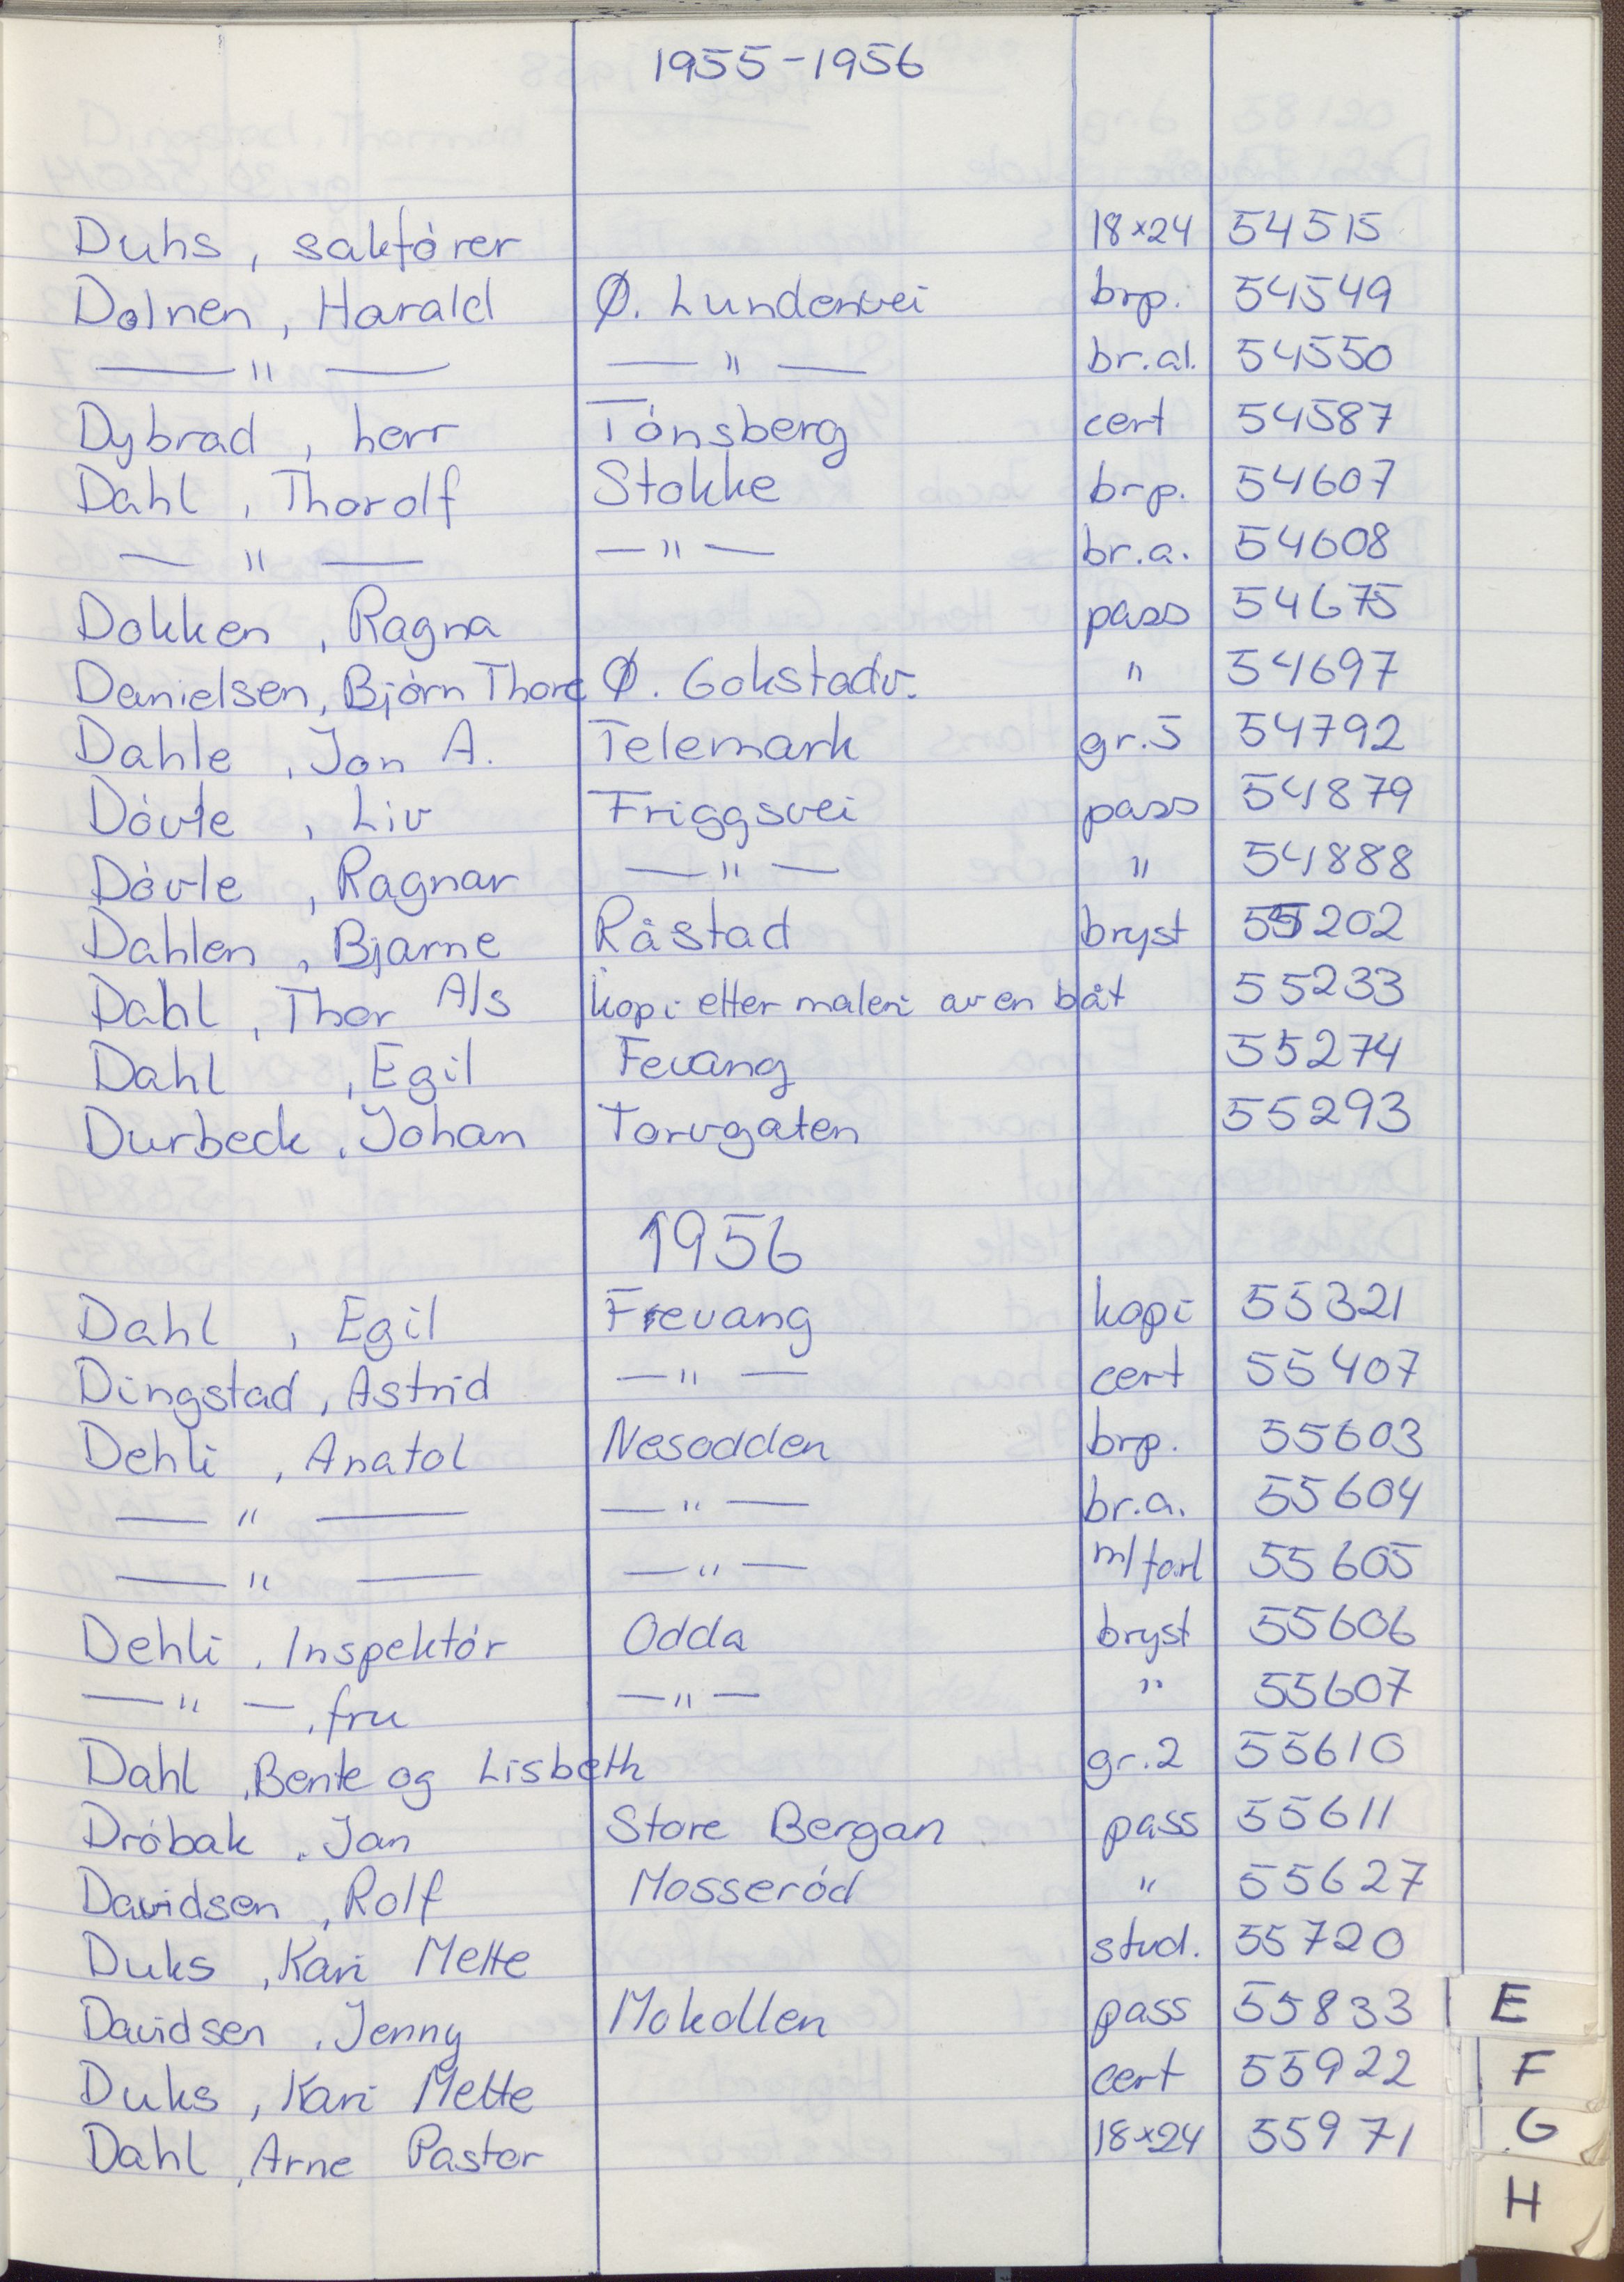 1955-1956
Duhs, sakfórer 18x24 54515
Dolnen, Harald Ø. Lundenvei brp. 54549
— " — — " — br.al. 54550
Dybrad, herr Tónsberg cert 54587
Dahl, Thorolf Stokke brp. 54607
— " — — " — br.a. 54608
Dokken, Ragna pass 54675
Danielsen, Bjórn Thore Ø. Gokstadv. " 54697
Dahle, Jon A. Telemark gr.5 54792
Dóvle, Liv Friggsvei pass 54879
Dóvle, Ragnar — " — " 54888
Dahlen, Bjarne Råstad bryst 55202
Dahl, Thor A/s kopi etter maleri av en båt 55233
Dahl, Egil Fevang 55274
Durbeck, Johan Torvgaten 55293
1956
Dahl, Egil Fevang kopi 55321
Dingstad, Astrid — " — cert 55407
Dehli, Anatol Nesodden brp. 55603
— " — — " — br.a. 55604
— " — — " — m/forl 55605
Dehli, Inspektór Odda bryst 55606
— " —, fru — " — " 55607
Dahl, Bente og Lisbeth gr.2 55610
Dróbak, Jan Store Bergan pass 55611
Davidsen, Rolf Mosseród " 55627
Duks, Kari Mette stud. 55720
Davidsen, Jenny Mokollen pass 55833
Duks, Kari Mette cert 55922
Dahl, Arne Pastor 18x24 55971
E
F
G
H